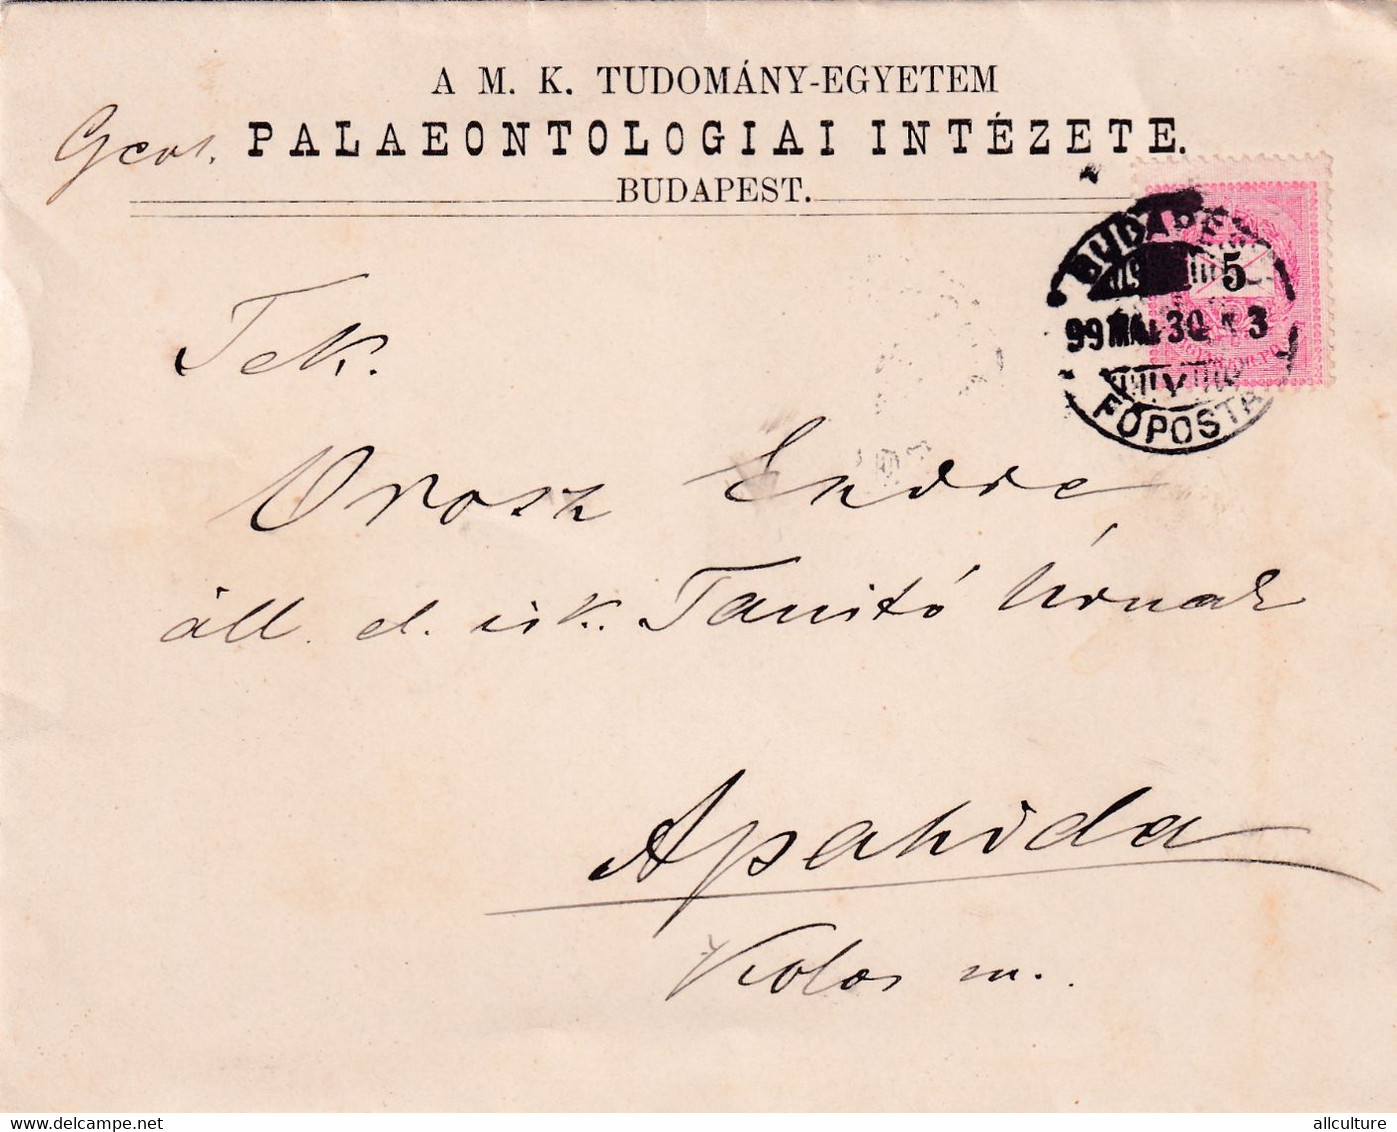 A M. K. TUDOMÁNY-EGYETEM
Geol. PALAEONTOLOGIAI INTÉZETE.
BUDAPEST.
BUDAPEST
5
99 MÁJ 30
3
FŐPOSTA
Tek.
Orosz Endre
áll. el. isk. Tanitó Úrnak
Apahida
Kolos m.
www.delcampe.net
allculture